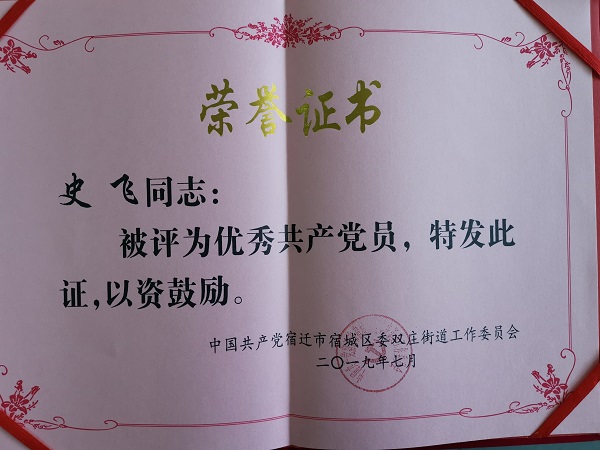 荣誉证书
史飞同志：
被评为优秀共产党员，特发此
证，以资鼓励。
中国共产党宿迁市宿城区委双庄街道工作委员会
二〇一九年七月